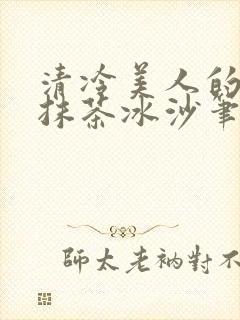 清冷美人的
抹茶冰沙筆
師太老衲對不